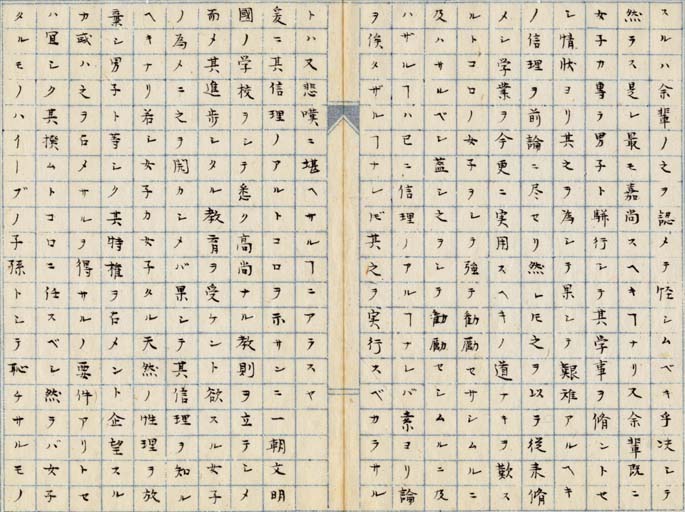 スルハ余輩ノ之ヲ認メテ怪シムベキ乎決シテ
然ラス是レ最モ嘉尚スヘキヿナリ又余輩既ニ
女子カ専ラ男子ト駢行シテ其学事ヲ脩ントセ
シ情状ヨリ其之ヲ為シテ果シテ艱難アルヘキ
ノ信理ヲ前論ニ尽セリ然レ𪜈之ヲ以テ従来脩
メシ学業ヲ今更ニ実用スヘキノ道ナキヲ歎ス
ルトコロノ女子ヲシテ強テ勧励セサシムルニ
及ハサルベシ蓋シ之ヲシテ勧励セシムルニ及
ハザルヿハ已ニ信理ノアルヿナレバ素ヨリ論
ヲ俟タザルヿナレ𪜈其之ヲ実行スベカラサル
トハ又悲嘆ニ堪ヘサルヿニアラスヤ
爰ニ其信理ノアルトコロヲ示サンニ一朝文明
國ノ学校ヲシテ悉ク高尚ナル教則ヲ立テシメ
而メ其進歩シタル教育ヲ受ケント欲スル女子
ノ為メニ之ヲ開カシメバ果シテ其信理ヲ知ル
ヘキナリ若シ女子カ女子タル天然ノ性理ヲ放
棄シ男子ト等シク其特権ヲ占メント企望スル
カ或ハ之ヲ占メサルヲ得サルノ要件アリトセ
ハ宜シク其撰ムトコロニ任スベシ然ラバ女子
タルモノハイーブノ子孫トシテ恥ケサルモノ